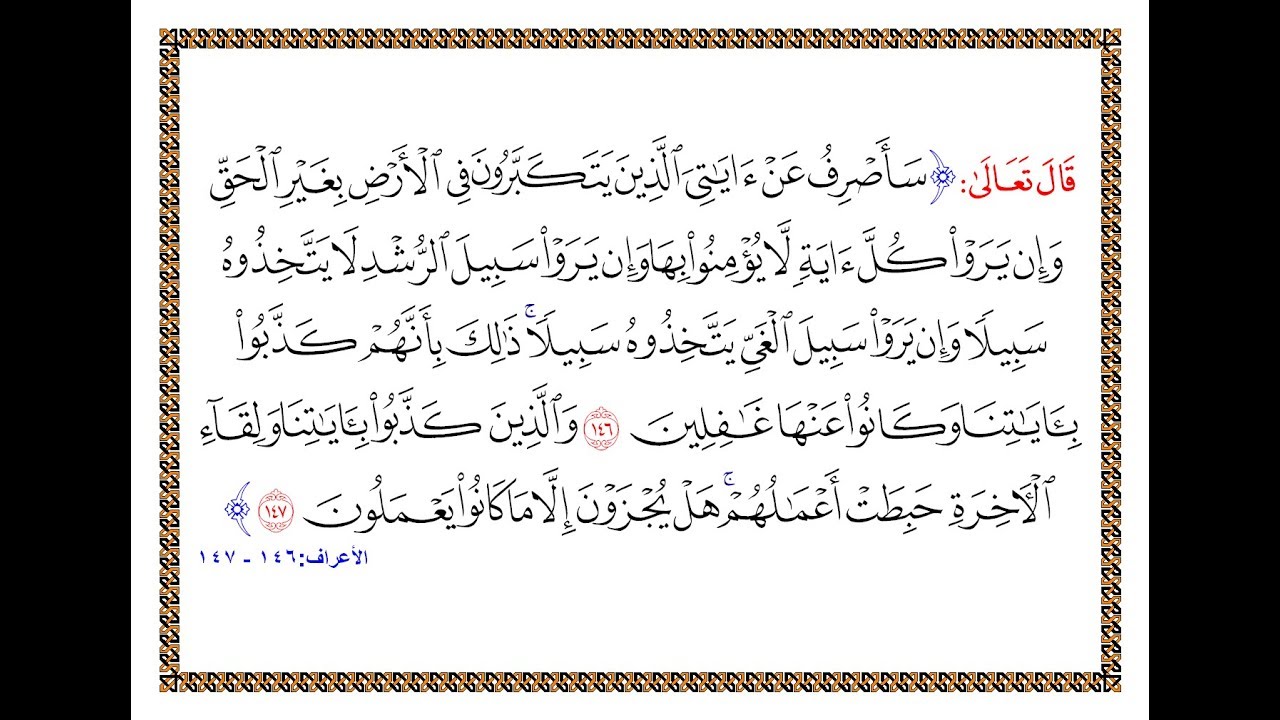 قَالَ تَعَالَىٰ: ﴿سَأَصۡرِفُ عَنۡ ءَايَٰتِيَ ٱلَّذِينَ يَتَكَبَّرُونَ فِي ٱلۡأَرۡضِ بِغَيۡرِ ٱلۡحَقِّ
وَإِن يَرَوۡاْ كُلَّ ءَايَةٖ لَّا يُؤۡمِنُواْ بِهَا وَإِن يَرَوۡاْ سَبِيلَ ٱلرُّشۡدِ لَا يَتَّخِذُوهُ
سَبِيلٗا وَإِن يَرَوۡاْ سَبِيلَ ٱلۡغَيِّ يَتَّخِذُوهُ سَبِيلٗاۚ ذَٰلِكَ بِأَنَّهُمۡ كَذَّبُواْ
بِـَٔايَٰتِنَا وَكَانُواْ عَنۡهَا غَٰفِلِينَ ١٤٦ وَٱلَّذِينَ كَذَّبُواْ بِـَٔايَٰتِنَا وَلِقَآءِ
ٱلۡأٓخِرَةِ حَبِطَتۡ أَعۡمَٰلُهُمۡۚ هَلۡ يُجۡزَوۡنَ إِلَّا مَا كَانُواْ يَعۡمَلُونَ ١٤٧﴾
الأعراف: ١٤٦ - ١٤٧